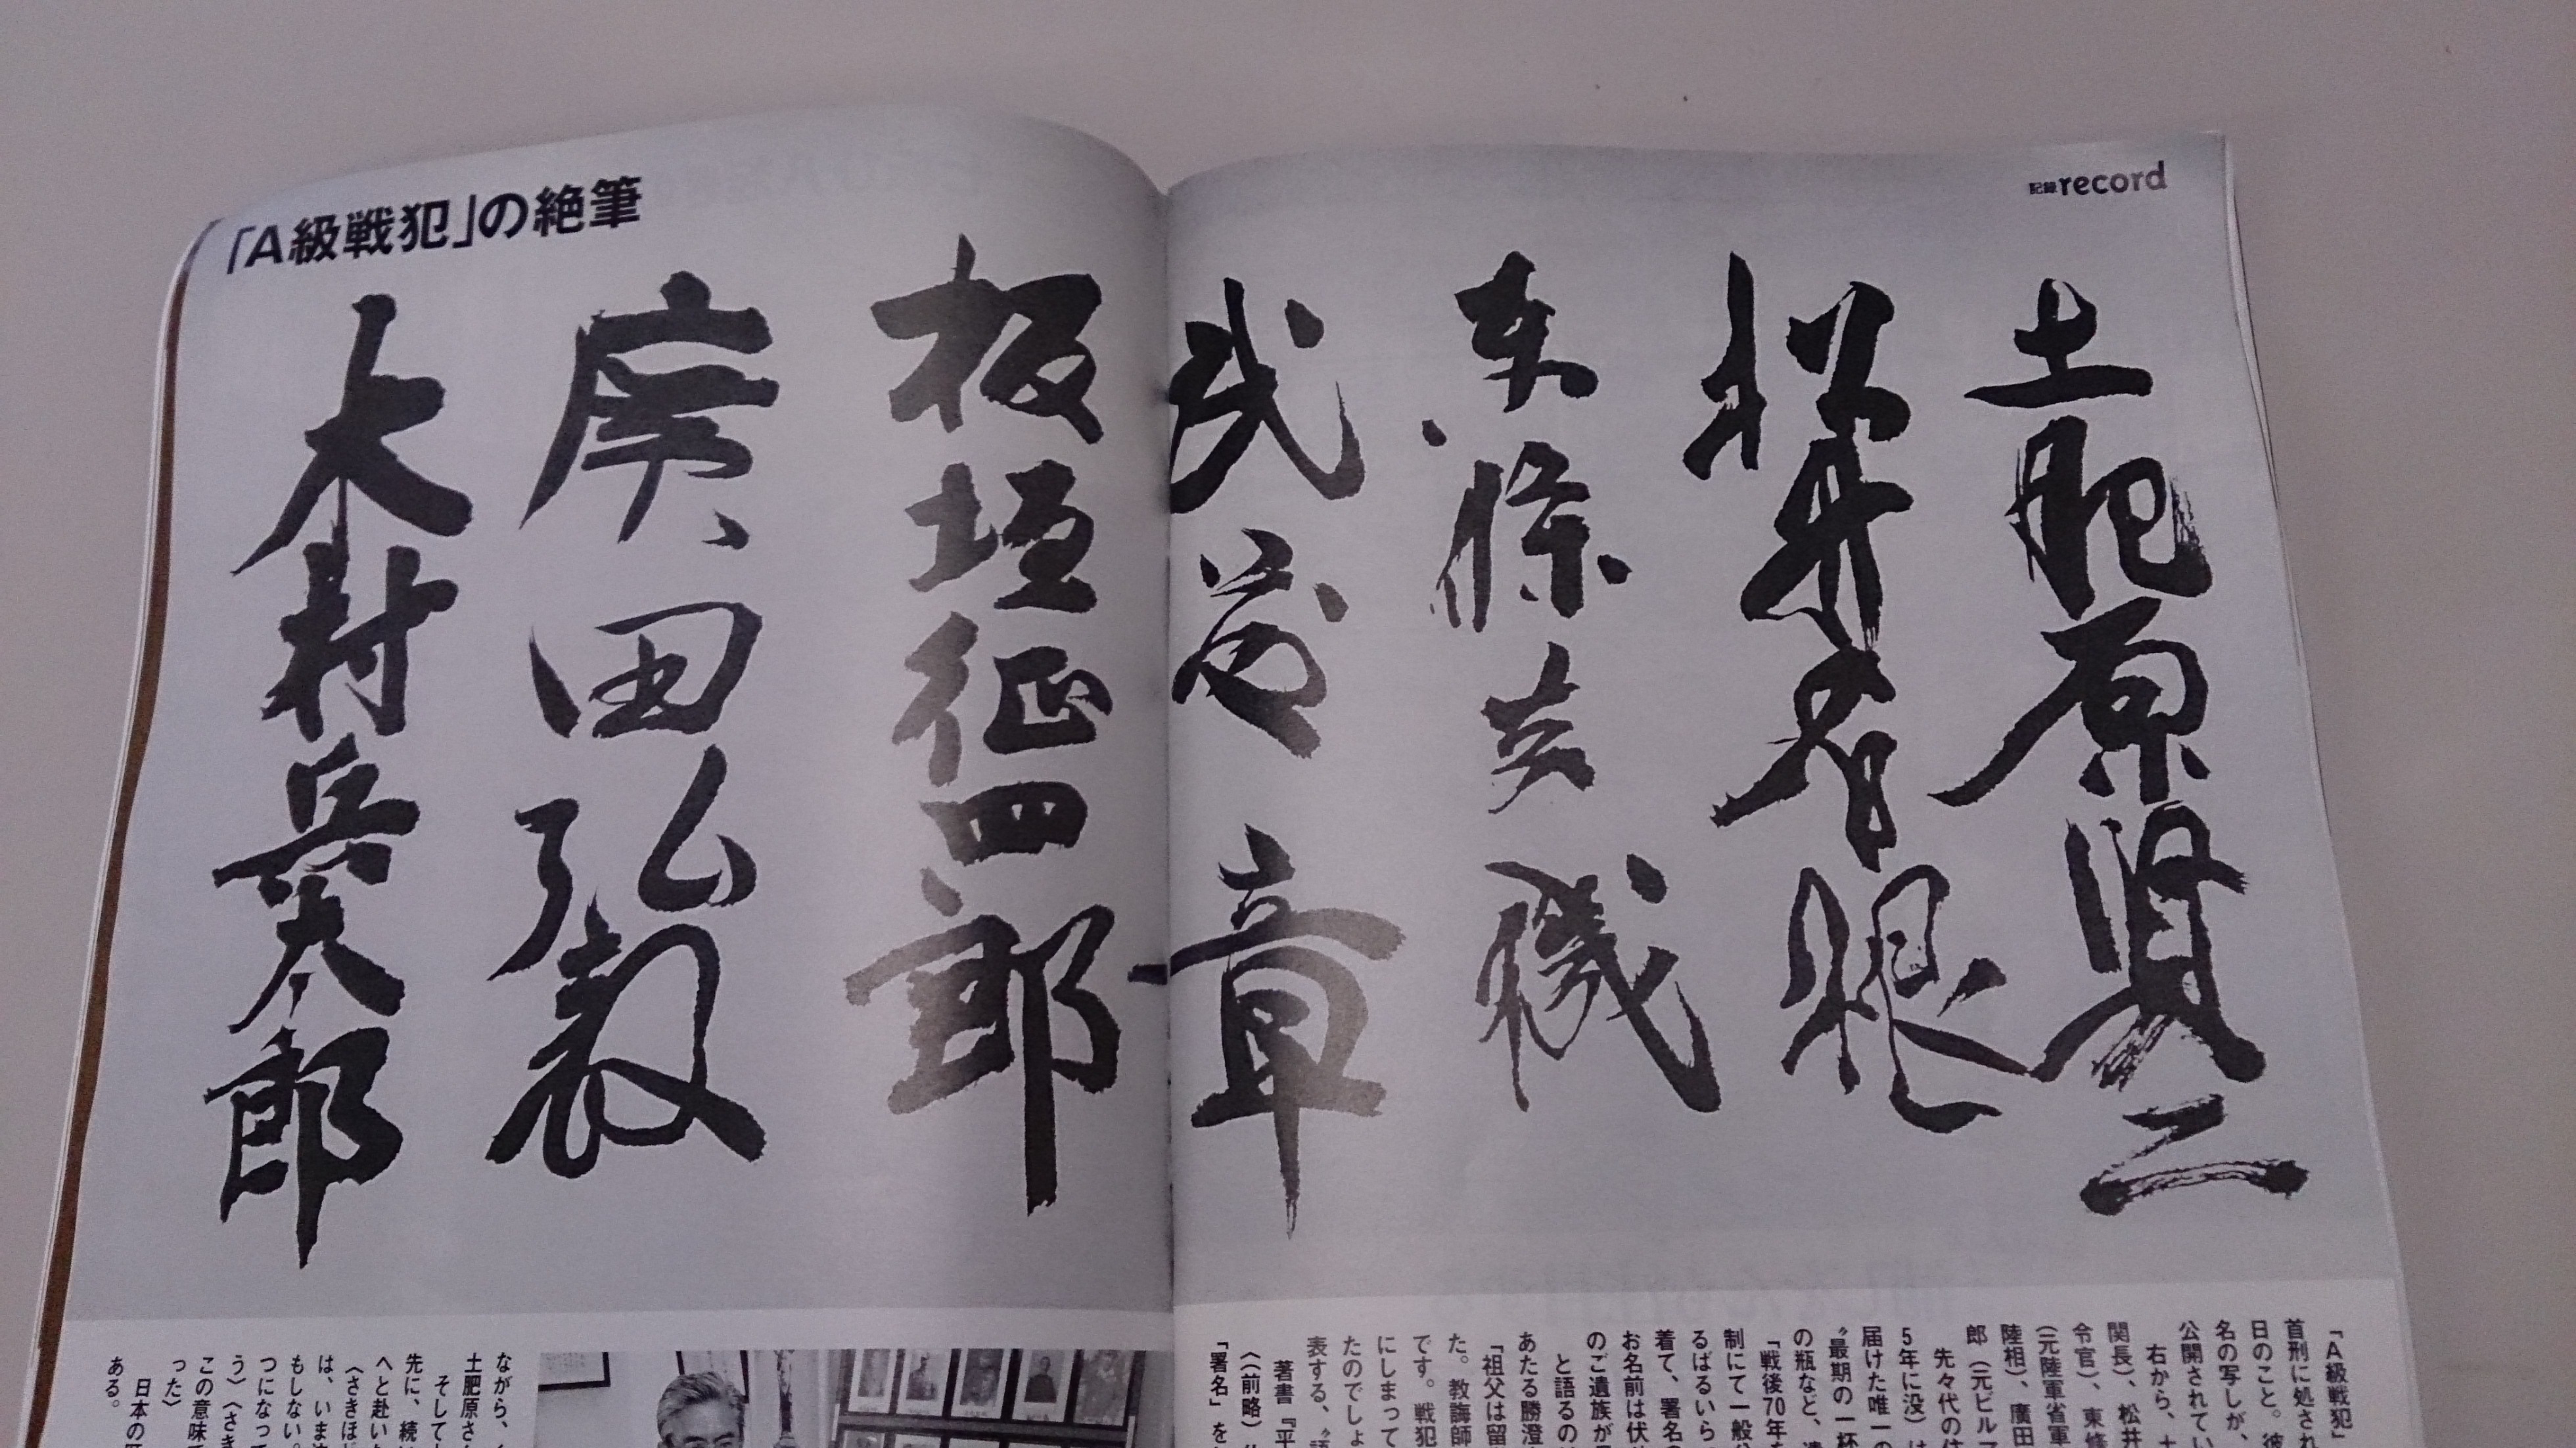 記録record
「A級戦犯」の絶筆
土肥原賢二
松井石根
東條英機
武藤章
板垣征四郎
廣田弘毅
木村兵太郎
「A級戦犯」
首刑に処され
日のこと。彼
名の写しが、
公開されてい
右から、土
関長)、松井
令官)、東條
(元陸軍省軍
陸相)、廣田
郎(元ビルマ
先々代の住
5年に没)は
届けた唯一の
〝最期の一杯
の瓶など、遺
「戦後70年を
制にて一般公
るばるいらっ
着て、署名の
お名前は伏せ
のご遺族が
と語るの
あたる勝澄
「祖父は留
た。教誨師
です。戦犯
にしまって
たのでしょ
表する、〝語
著書『平
〈(前略)
「署名」を
ながら、
土肥原さん
そして
先に、続い
へと赴いた
〈さきほど
は、いま
もしない。
つになって
う〉〈さき
この意味で
った〉
日本の
ある。